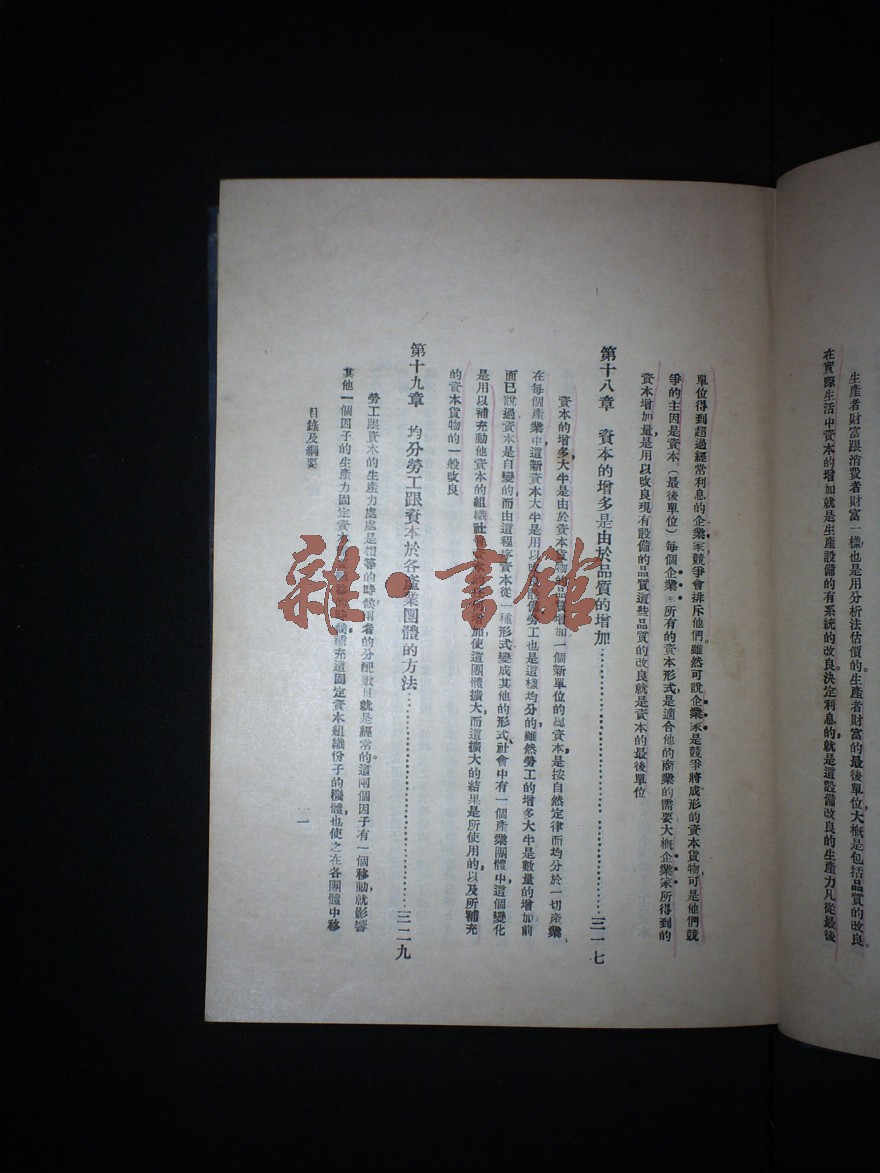 生產者財富跟消費者財富一樣也是用分析法估價的。生產者財富的最後單位大概是包括品質的改良。
在實際生活中資本的增加就是生產設備的有系統的改良。決定利息的,就是這設備改良的生產力凡從最後
單位得到超過經常利息的企業家競爭會排斥他們。雖然可說企業家是競爭將成形的資本貨物,可是他們競
爭的主因是資本(最後單位)每個企業家所有的資本形式,是適合他的商業的需要大概企業家所得到的
資本增加量是用以改良現有設備的品質這些品質的改良就是資本的最後單位
第十八章 資本的增多是由於品質的增加…………三一七
資本的增多大半是由於資本貨物的品質增加一個新單位的總資本,是按自然定律而均分於一切產業,
在每個產業中這新資本大半是用以改良設備勞工也是這樣均分的,雖然勞工的增多大半是數量的增加前
面已說過資本是自變的,而由這程序資本從一種形式變成其他的形式,社會中有一個產業團體中,這個變化
是用以補充動他資本的組織社會資本的任何增加使這團體擴大,而這擴大的結果是所使用的,以及所補充
的資本貨物的一般改良
第十九章 均分勞工跟資本於各產業團體的方法…………三二九
勞工跟資本的生產力處處是相等的時候,兩者的分配數目就是經常的。這兩個因子有一個移動,就影響
其他一個因子的生產力固定資本 的時候,補充這固定資本組織份子的機體,也使之在各團體中移
目錄及綱要
二一
雜·書館